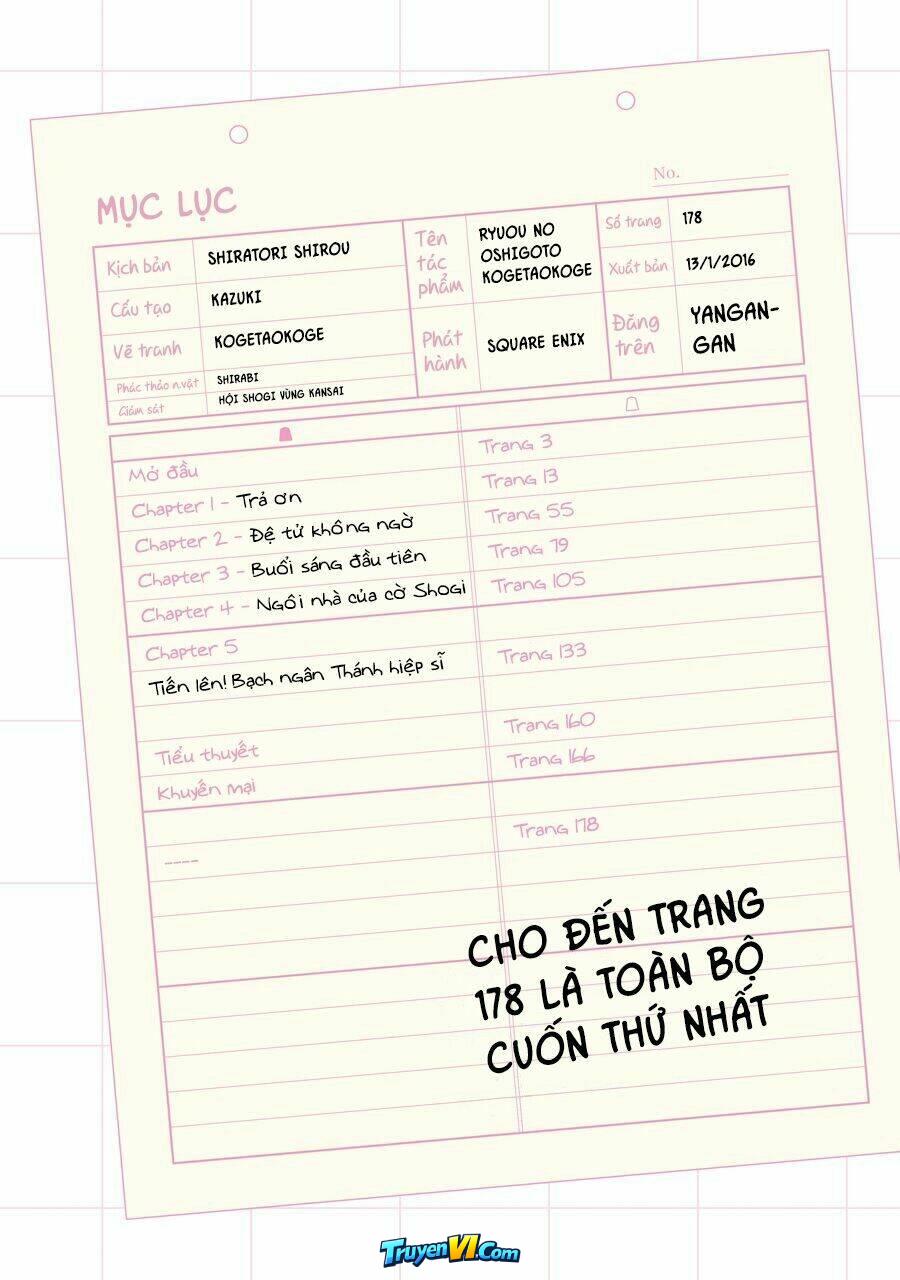 No.
MỤC LỤC
Kịch bản
SHIRATORI SHIROU
Cấu tạo
KAZUKI
Vẽ tranh
KOGETAOKOGE
Phác thảo n.vật
SHIRABI
Giám sát
HỘI SHOGI VÙNG KANSAI
Tên
tác
phẩm
RYUOU NO
OSHIGOTO
KOGETAOKOGE
Phát
hành
SQUARE ENIX
Số trang
178
Xuất bản
13/1/2016
Đăng
trên
YANGAN-
GAN
Mở đầu
Trang 3
Chapter 1 - Trả ơn
Trang 13
Chapter 2 - Đệ tử không ngờ
Trang 55
Chapter 3 - Buổi sáng đầu tiên
Trang 79
Chapter 4 - Ngôi nhà của cờ Shogi
Trang 105
Chapter 5
Tiến lên! Bạch ngân Thánh hiệp sĩ
Trang 133
Tiểu thuyết
Trang 160
Khuyến mại
Trang 166
----
Trang 178
CHO ĐẾN TRANG
178 LÀ TOÀN BỘ
CUỐN THỨ NHẤT
TruyenVI.Com